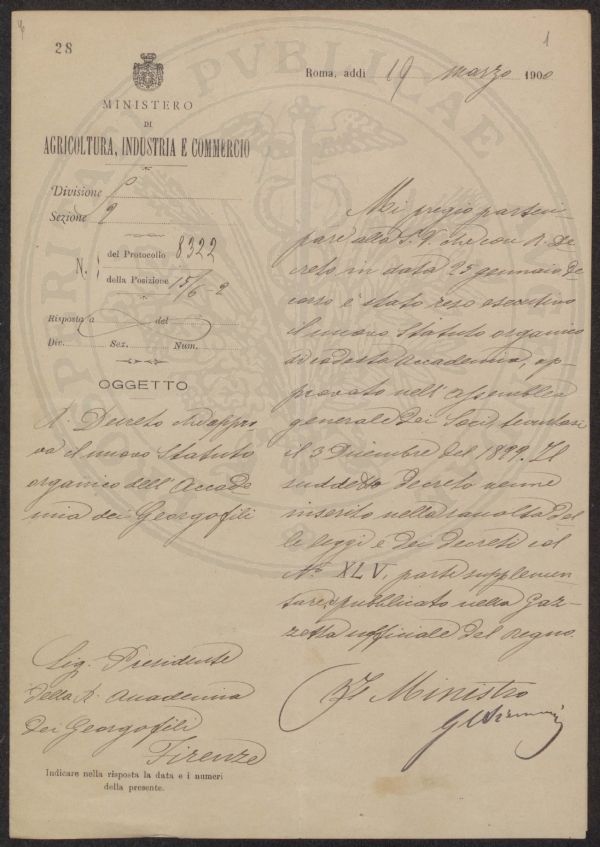 28
1
Roma, addì 19 marzo 1900
MINISTERO
DI
AGRICOLTURA, INDUSTRIA E COMMERCIO
Divisione
Sezione 2
N. del Protocollo 8322
della Posizione 15/6 2
Risposta a del
Div. Sez. Num.
OGGETTO
R. Decreto che appro
va il nuovo Statuto
organico dell'Accade
mia dei Georgofili
Mi pregio parteci-
pare alla S.V. che con R. De
creto in data 25 gennaio de
corso è stato reso esecutivo
il nuovo Statuto organico
di codesta Accademia, ap-
provato nell'Assemblea
generale dei Soci tenutasi
il 3 Dicembre del 1899. Il
suddetto Decreto venne
inserito nella raccolta del
le leggi e dei decreti col
N° XLV, parte supplemen
tare, pubblicato nella Gaz-
zetta ufficiale del regno.
Il Ministro
Sig. Presidente
della R. Accademia
dei Georgofili
Firenze
Indicare nella risposta la data e i numeri
della presente.